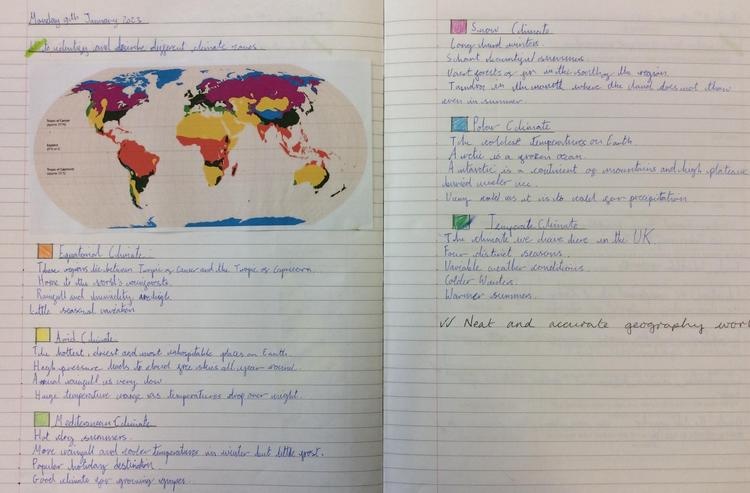 Monday 9th January 2023
to identify and describe different climate zones.
Tropic of Cancer
Equator
Tropic of Capricorn
Equatorial Climate
These regions lie between Tropic of Cancer and the Tropic of Capricorn.
Home to the world's rainforests.
Rainfall and humidity are high
Little seasonal variation
Arid Climate
The hottest, driest and most inhospitable places on Earth.
High pressure leads to cloud free skies all year around.
Annual rainfall is very low
Huge temperature range as temperatures drop over night.
Mediterranean Climate
Hot dry summers.
More rainfall and cooler temperatures in winter but little frost.
Popular holiday destination.
Good climate for growing grapes
Snow Climate
Long hard winters.
Short beautiful summers
Vast forests of fir in the south of the region.
Tundra in the north where the land does not thaw
even in summer.
Polar Climate
The coldest temperatures on Earth.
Arctic is a frozen ocean.
Antarctic is a continent of mountains and high plateaus
buried under ice.
Very cold as it is to cold for precipitation
Temperate Climate
The climate we have here in the UK.
Four distinct seasons.
Variable weather conditions
Colder Winters.
Warmer summers.
Neat and accurate geography